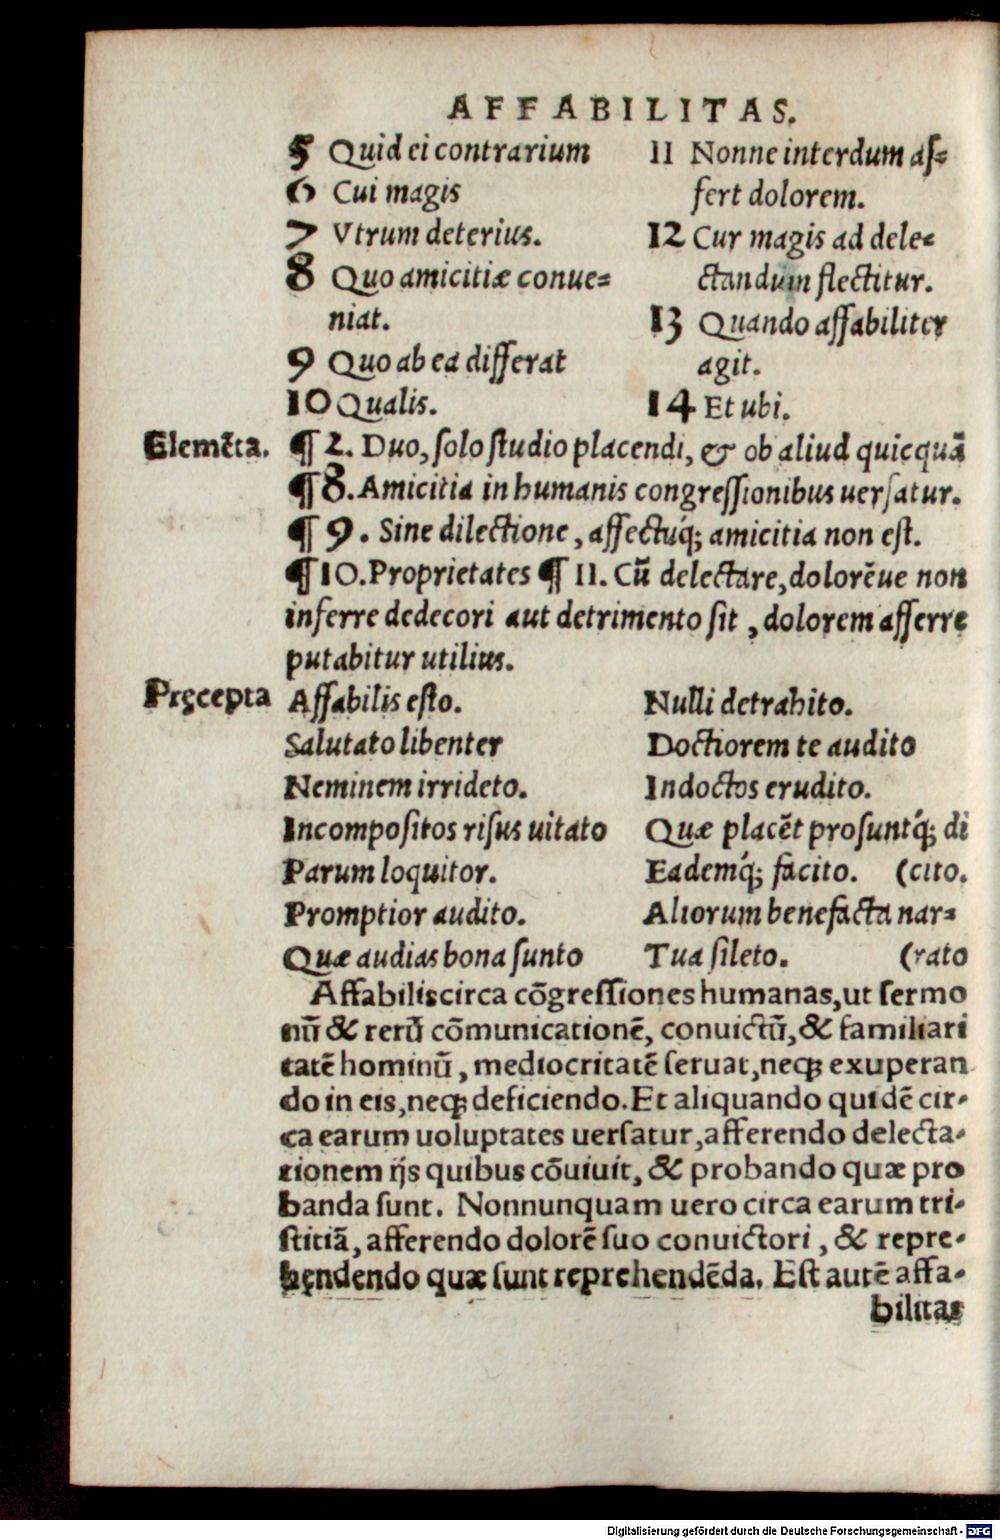 AFFABILITAS.
5 Quid ei contrarium
6 Cui magis
7 Vtrum deterius.
8 Quo amicitiæ conue⸗
niat.
9 Quo ab ea differat
10 Qualis.
11 Nonne interdum aſ⸗
fert dolorem.
12 Cur magis ad dele⸗
ctandum flectitur.
13 Quando affabiliter
agit.
14 Et ubi.
Elemẽta. ¶ 2. Duo, ſolo ſtudio placendi, & ob aliud quicquã
¶ 8. Amicitia in humanis congreſſionibus uerſatur.
¶ 9. Sine dilectione, affectuq́; amicitia non eſt.
¶ 10. Proprietates ¶ 11. Cũ delectare, dolorẽue non
inferre dedecori aut detrimento ſit, dolorem afferre
putabitur utilius.
Pręcepta
Affabilis eſto.
Salutato libenter
Neminem irrideto.
Incompoſitos riſus uitato
Parum loquitor.
Promptior audito.
Quæ audias bona ſunto
Nulli detrahito.
Doctiorem te audito
Indoctos erudito.
Quæ placẽt proſuntq́; di
Eademq́; facito. (cito.
Aliorum benefacta nar⸗
Tua ſileto. (rato
Affabilis circa cõgreſſiones humanas, ut ſermo
nũ & rerũ cõmunicationẽ, conuictũ, & familiari
tatẽ hominũ, mediocritatẽ ſeruat, neq; exuperan
do in eis, neq; deficiendo. Et aliquando quidẽ cir-
ca earum uoluptates uerſatur, afferendo delecta-
tionem ijs quibus cõuiuit, & probando quæ pro
banda ſunt. Nonnunquam uero circa earum tri-
ſtitiã, afferendo dolorẽ ſuo conuictori, & repre-
hęndendo quæ ſunt reprehendẽda. Eſt autẽ affa-
bilitas
Digitalisierung gefördert durch die Deutsche Forschungsgemeinschaft - DFG